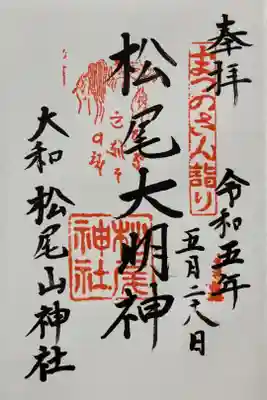 奉拝
まつのさん詣り
令和五年
五月二八日
松尾大明神
松尾神社
大和 松尾山神社